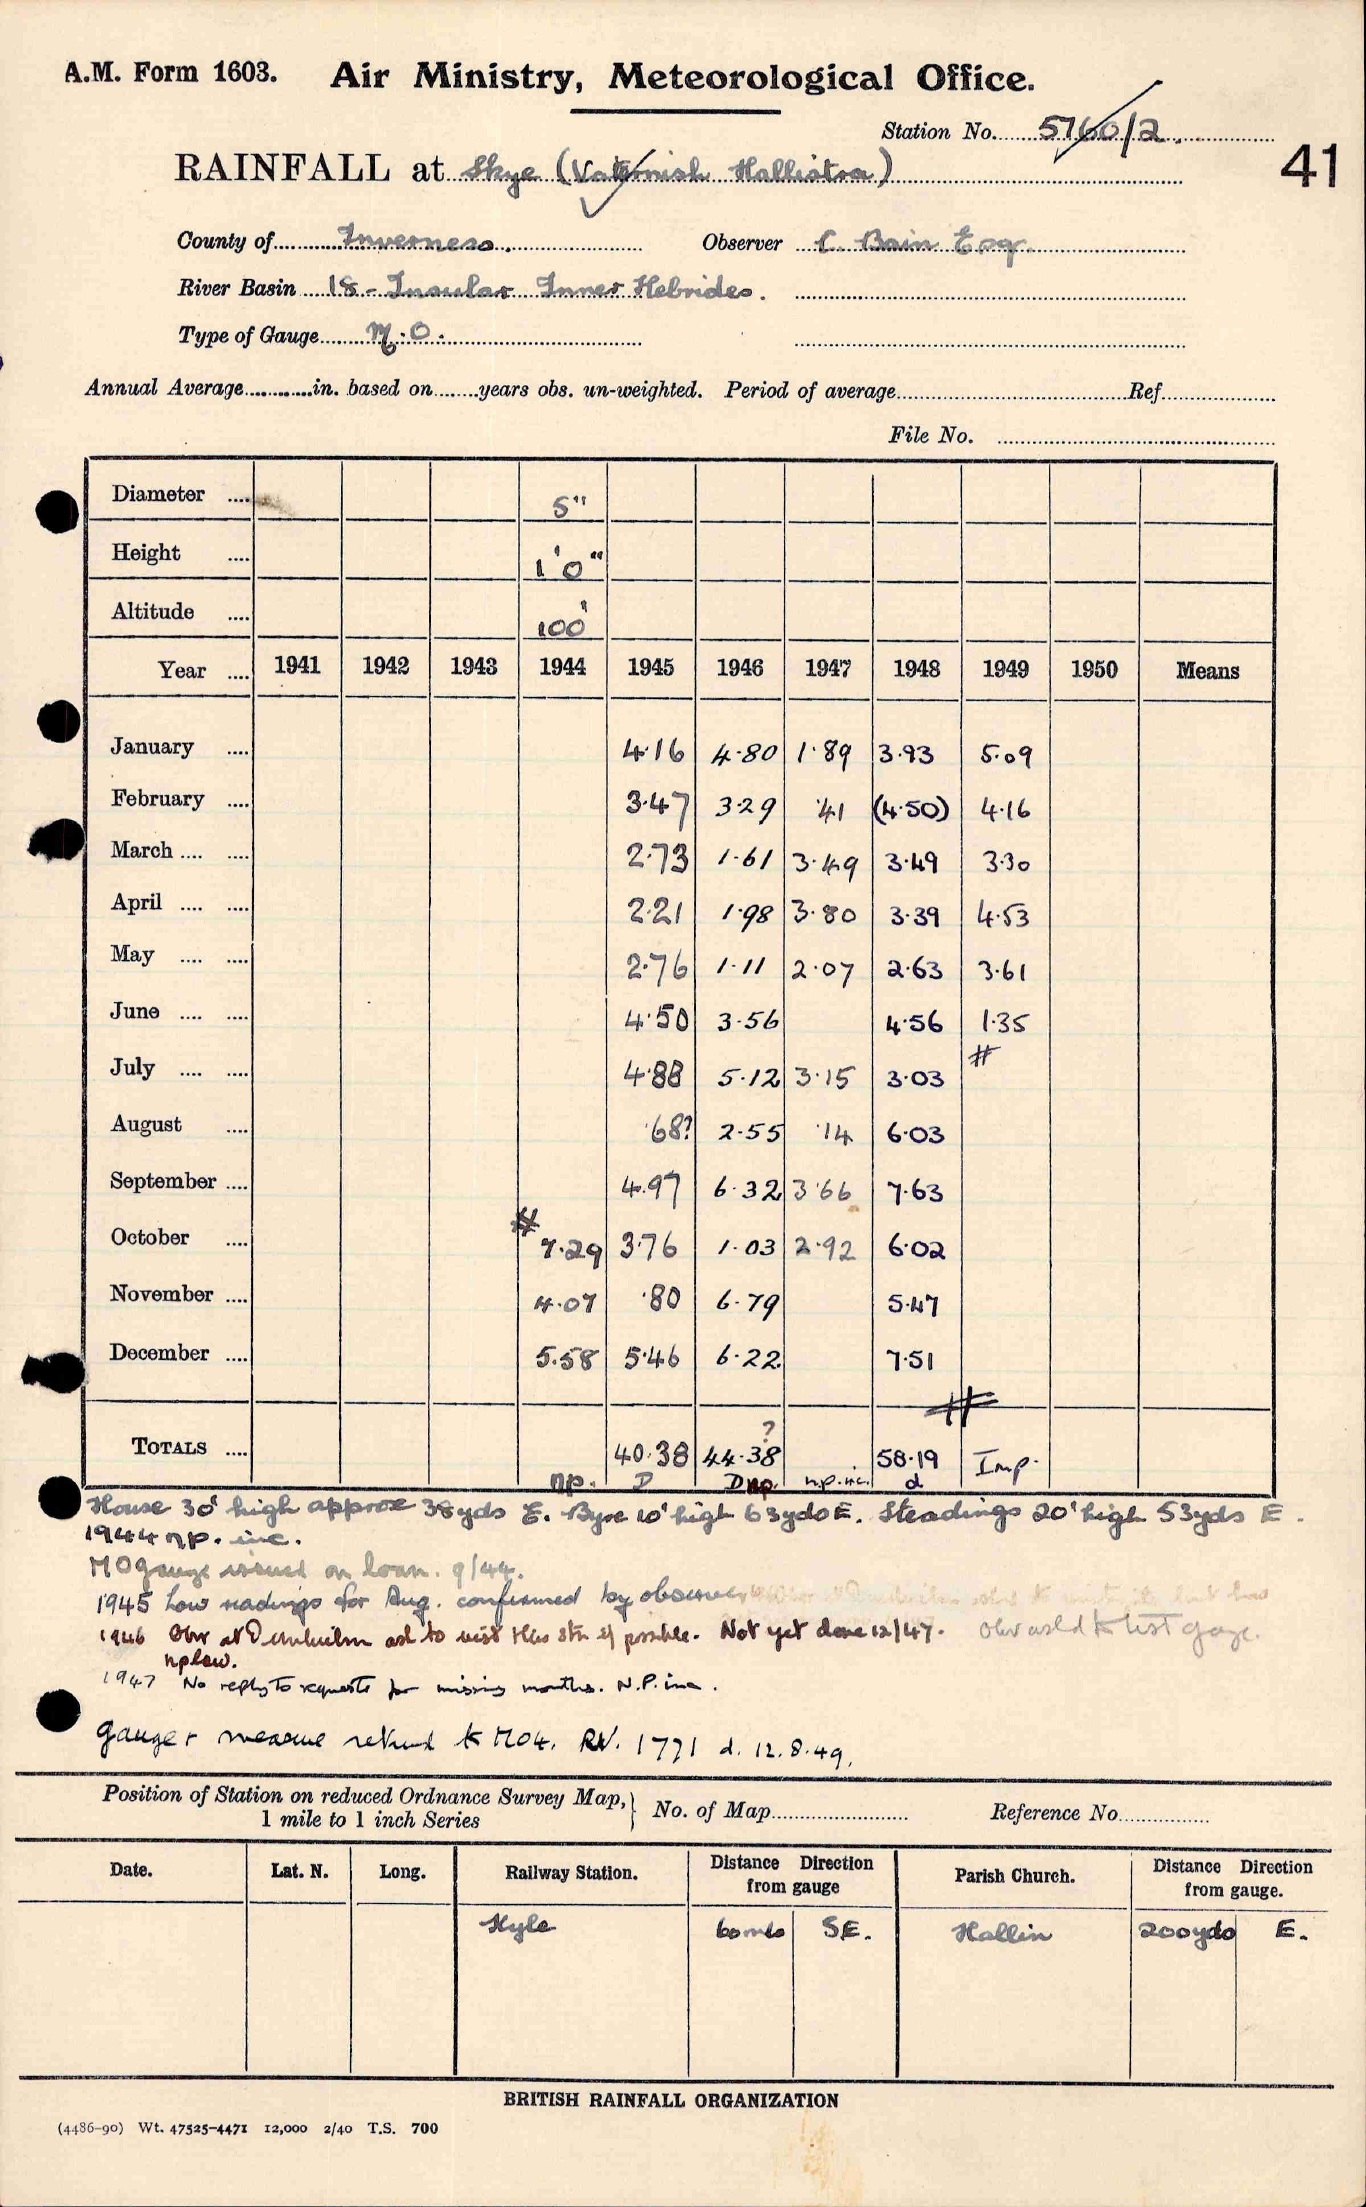 A.M. Form 1603. Air Ministry, Meteorological Office.
Station No. 5760/2.
41
RAINFALL at Skye (Vaternish Hallistra)
County of Inverness. Observer C. Bain Esq.
River Basin 18 - Insular Inner Hebrides.
Type of Gauge M.O.
Annual Average in. based on years obs. un-weighted. Period of average Ref.
File No.
Diameter .... 5"
Height .... 1'0"
Altitude .... 100'
Year .... 1941 1942 1943 1944 1945 1946 1947 1948 1949 1950 Means
January .... 4.16 4.80 1.89 3.93 5.09
February .... 3.47 3.29 .41 (4.50) 4.16
March .... .... 2.73 1.61 3.49 3.49 3.30
April .... .... 2.21 1.98 3.80 3.39 4.53
May .... .... 2.76 1.11 2.07 2.63 3.61
June .... .... 4.50 3.56 4.56 1.35
July .... .... 4.88 5.12 3.15 3.03 #
August .... .68? 2.55 .14 6.03
September .... 4.97 6.32 3.66 7.63
October .... # 7.29 3.76 1.03 2.92 6.02
November .... 4.07 .80 6.79 5.47
December .... 5.58 5.46 6.22 7.51
#
TOTALS .... 40.38 44.38? 58.19 Imp.
np. D D np. n.p. inc. d
House 30' high approx 38yds E. Byre 10' high 63yds E. Steadings 20' high 53yds E.
1944 np. inc.
MO gauge issued on loan. 9/44.
1945 Low readings for Aug. confirmed by observer
1946 Obsr at Dunvegan ask to visit this stn if possible. Not yet done 12/47. Obsr asked to test gauge.
np low.
1947 No reply to requests for missing months. N.P. inc.
Gauge + measure returned to MO4. RV. 1771 d. 12.8.49.
Position of Station on reduced Ordnance Survey Map, 1 mile to 1 inch Series } No. of Map Reference No.
Date. Lat. N. Long. Railway Station. Distance Direction from gauge Parish Church. Distance Direction from gauge.
Kyle 60 mls SE. Hallin 200yds E.
BRITISH RAINFALL ORGANIZATION
(4486-90) Wt. 47525-4471 12,000 2/40 T.S. 700